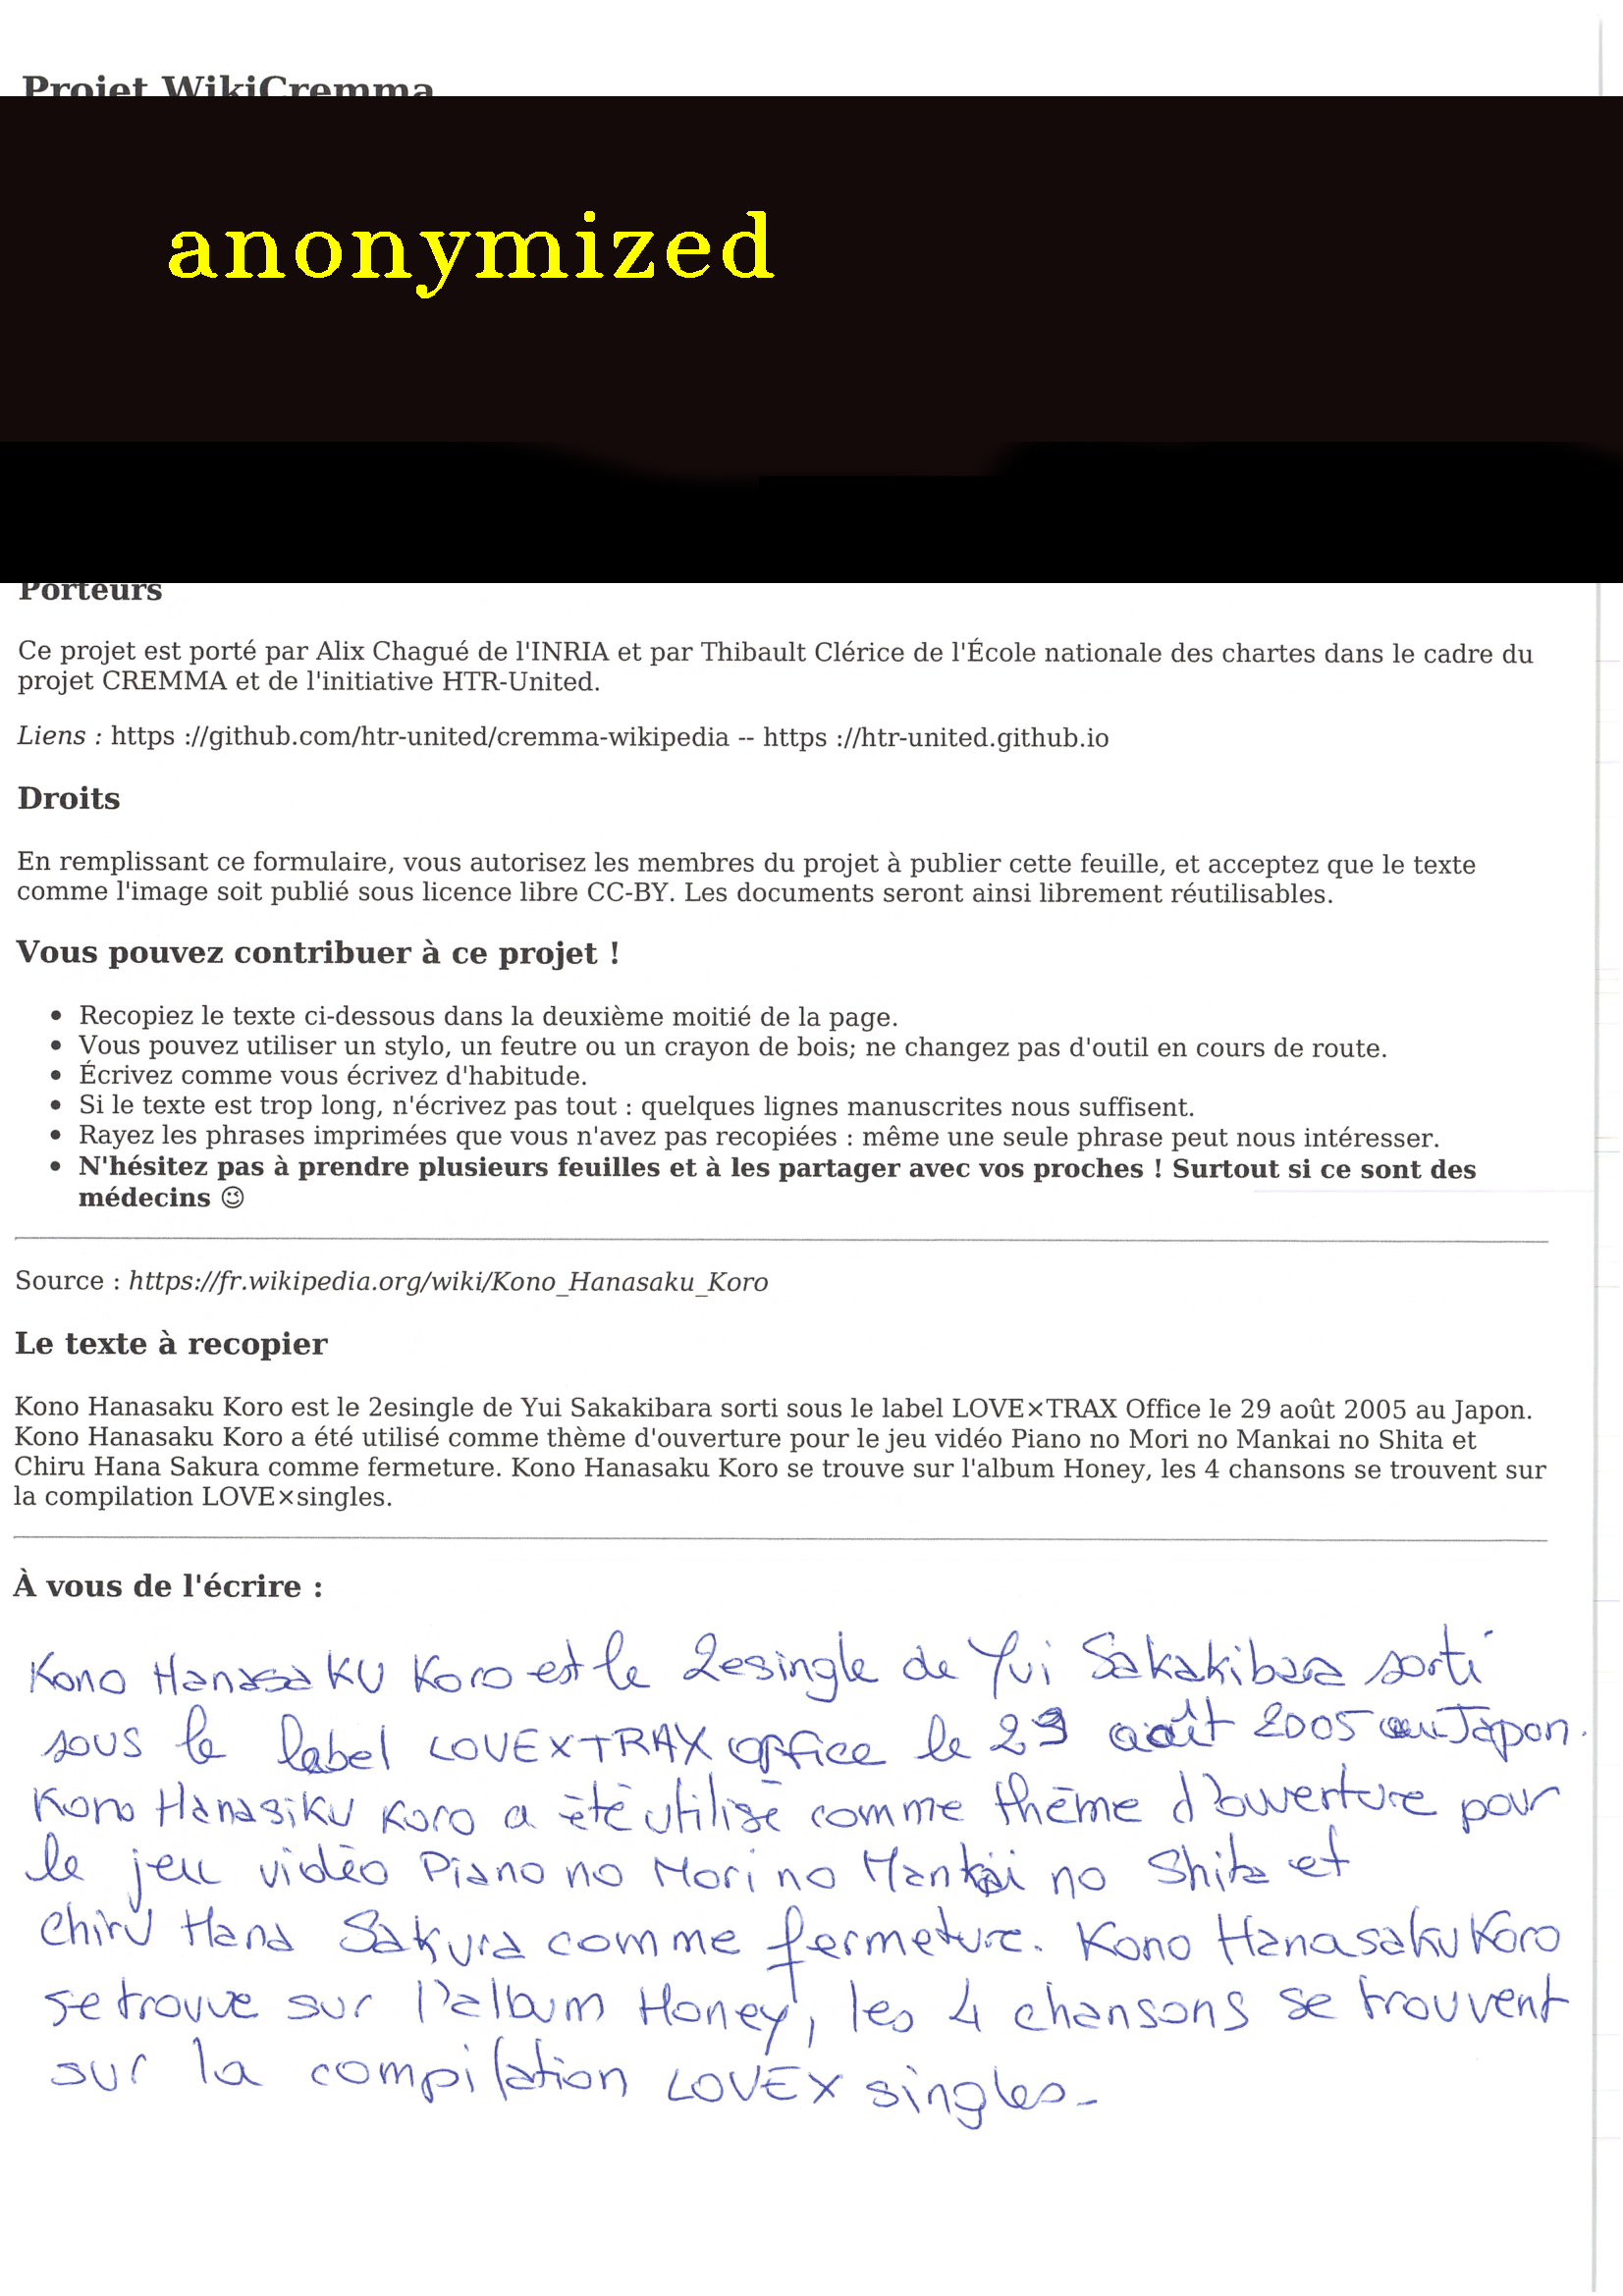 Projet WikiCremma
anonymized
Porteurs
Ce projet est porté par Alix Chagué de l'INRIA et par Thibault Clérice de l'École nationale des chartes dans le cadre du
projet CREMMA et de l'initiative HTR-United.
Liens : https ://github.com/htr-united/cremma-wikipedia -- https ://htr-united.github.io
Droits
En remplissant ce formulaire, vous autorisez les membres du projet à publier cette feuille, et acceptez que le texte
comme l'image soit publié sous licence libre CC-BY. Les documents seront ainsi librement réutilisables.
Vous pouvez contribuer à ce projet !
• Recopiez le texte ci-dessous dans la deuxième moitié de la page.
• Vous pouvez utiliser un stylo, un feutre ou un crayon de bois; ne changez pas d'outil en cours de route.
• Écrivez comme vous écrivez d'habitude.
• Si le texte est trop long, n'écrivez pas tout : quelques lignes manuscrites nous suffisent.
• Rayez les phrases imprimées que vous n'avez pas recopiées : même une seule phrase peut nous intéresser.
• N'hésitez pas à prendre plusieurs feuilles et à les partager avec vos proches ! Surtout si ce sont des
médecins 😉
Source : https://fr.wikipedia.org/wiki/Kono_Hanasaku_Koro
Le texte à recopier
Kono Hanasaku Koro est le 2esingle de Yui Sakakibara sorti sous le label LOVE×TRAX Office le 29 août 2005 au Japon.
Kono Hanasaku Koro a été utilisé comme thème d'ouverture pour le jeu vidéo Piano no Mori no Mankai no Shita et
Chiru Hana Sakura comme fermeture. Kono Hanasaku Koro se trouve sur l'album Honey, les 4 chansons se trouvent sur
la compilation LOVE×singles.
À vous de l'écrire :
Kono Hanasaku Koro est le 2esingle de Yui Sakakibara sorti
sous le label LOVE×TRAX office le 29 août 2005 au Japon.
Kono Hanasiku Koro a été utilisé comme thème d'ouverture pour
le jeu vidéo Piano no Mori no Mankai no Shita et
Chiru Hana Sakura comme fermeture. Kono Hanasaku Koro
se trouve sur l'album Honey, les 4 chansons se trouvent
sur la compilation LOVE× singles.